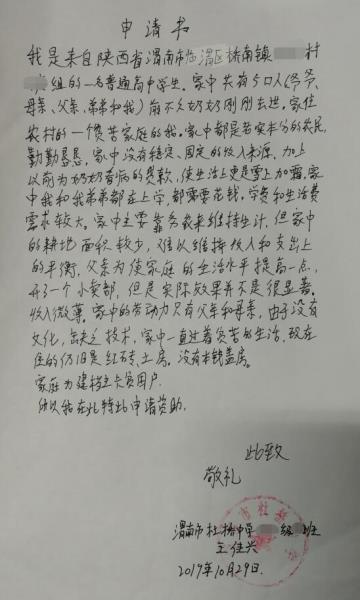 申请书
我是来自陕西省渭南市临渭区桥南镇 村
组的一名普通高中学生。家中共有5口人(爷爷、
母亲、父亲、弟弟和我)前不久奶奶刚刚去逝。家住
农村的一贯苦家庭的我。家中都是老实本分的农民,
勤勤恳恳。家中没有稳定、固定的收入来源,加上
以前为奶奶看病的贷款,使生活上更是雪上加霜。家
中我和我弟弟都在上学,都需要花钱。学费和生活费
需求较大。家中主要靠务农来维持生计,但家中
的耕地面积较少,难以维持收入和支出上
的平衡,父亲为使家庭的生活水平提高一点,
开了一个小卖部,但是实际效果并不是很显著。
收入微薄,家中的劳动力只有父亲和母亲,由于没有
文化,缺乏技术,家中一直过着贫苦的生活,现在
住的仍旧是红砖土房。没有本钱盖房。
家庭为建档立卡贫困户
所以我在此特此申请资助。
此致
敬礼
渭南市杜桥中学 级 班
王佳兴
2019年10月29日.